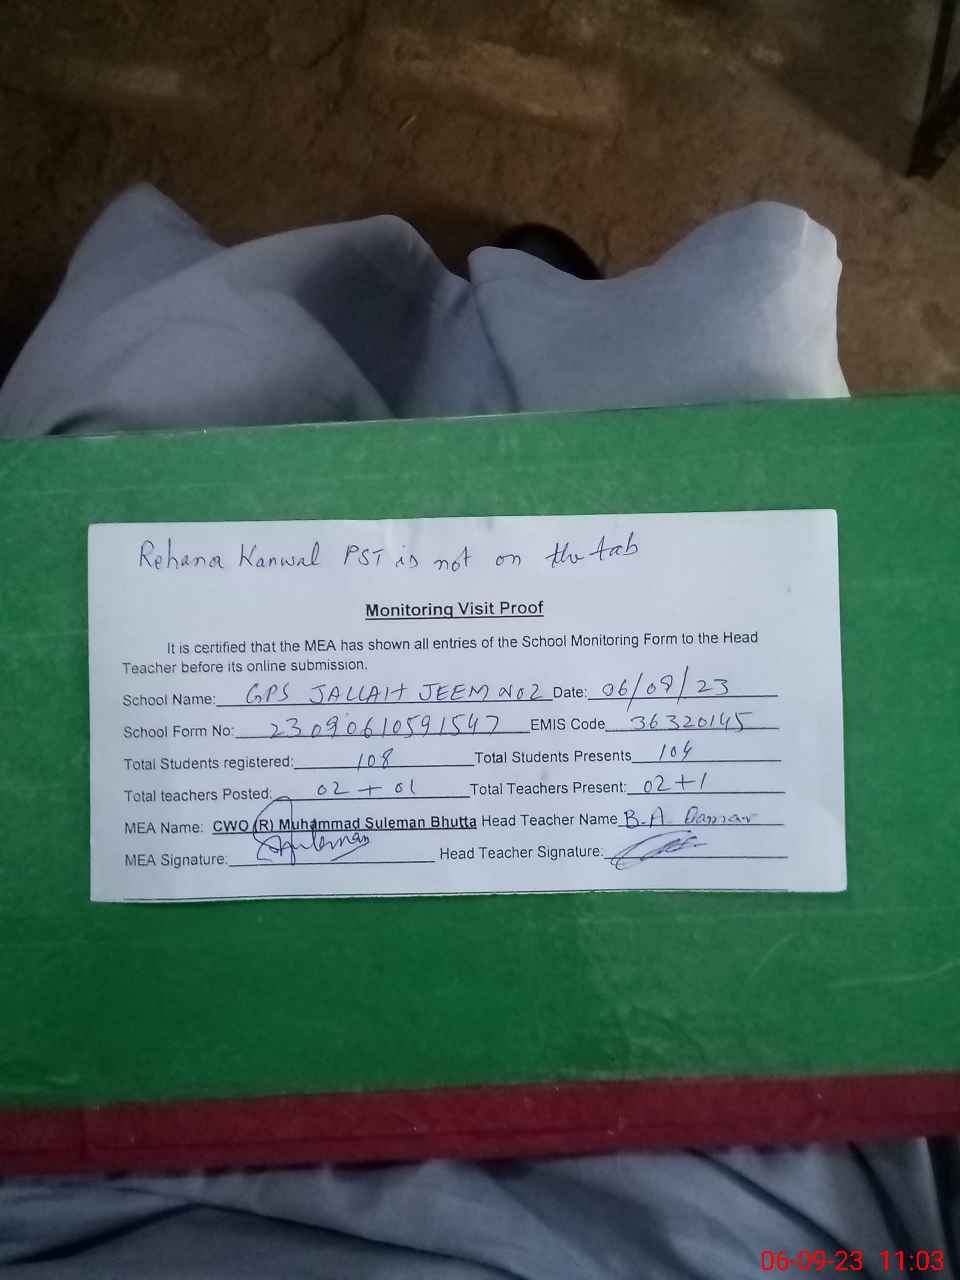 Rehana Kanwal PST is not on the tab
Monitoring Visit Proof
It is certified that the MEA has shown all entries of the School Monitoring Form to the Head
Teacher before its online submission.
School Name: GPS JALLAH JEEM NO2 Date: 06/09/23
School Form No: 23090610591547 EMIS Code 36320145
Total Students registered: 108 Total Students Presents 104
Total teachers Posted: 02 + 01 Total Teachers Present: 02+1
MEA Name: CWO (R) Muhammad Suleman Bhutta Head Teacher Name B.A
MEA Signature: Head Teacher Signature:
06-09-23 11:03